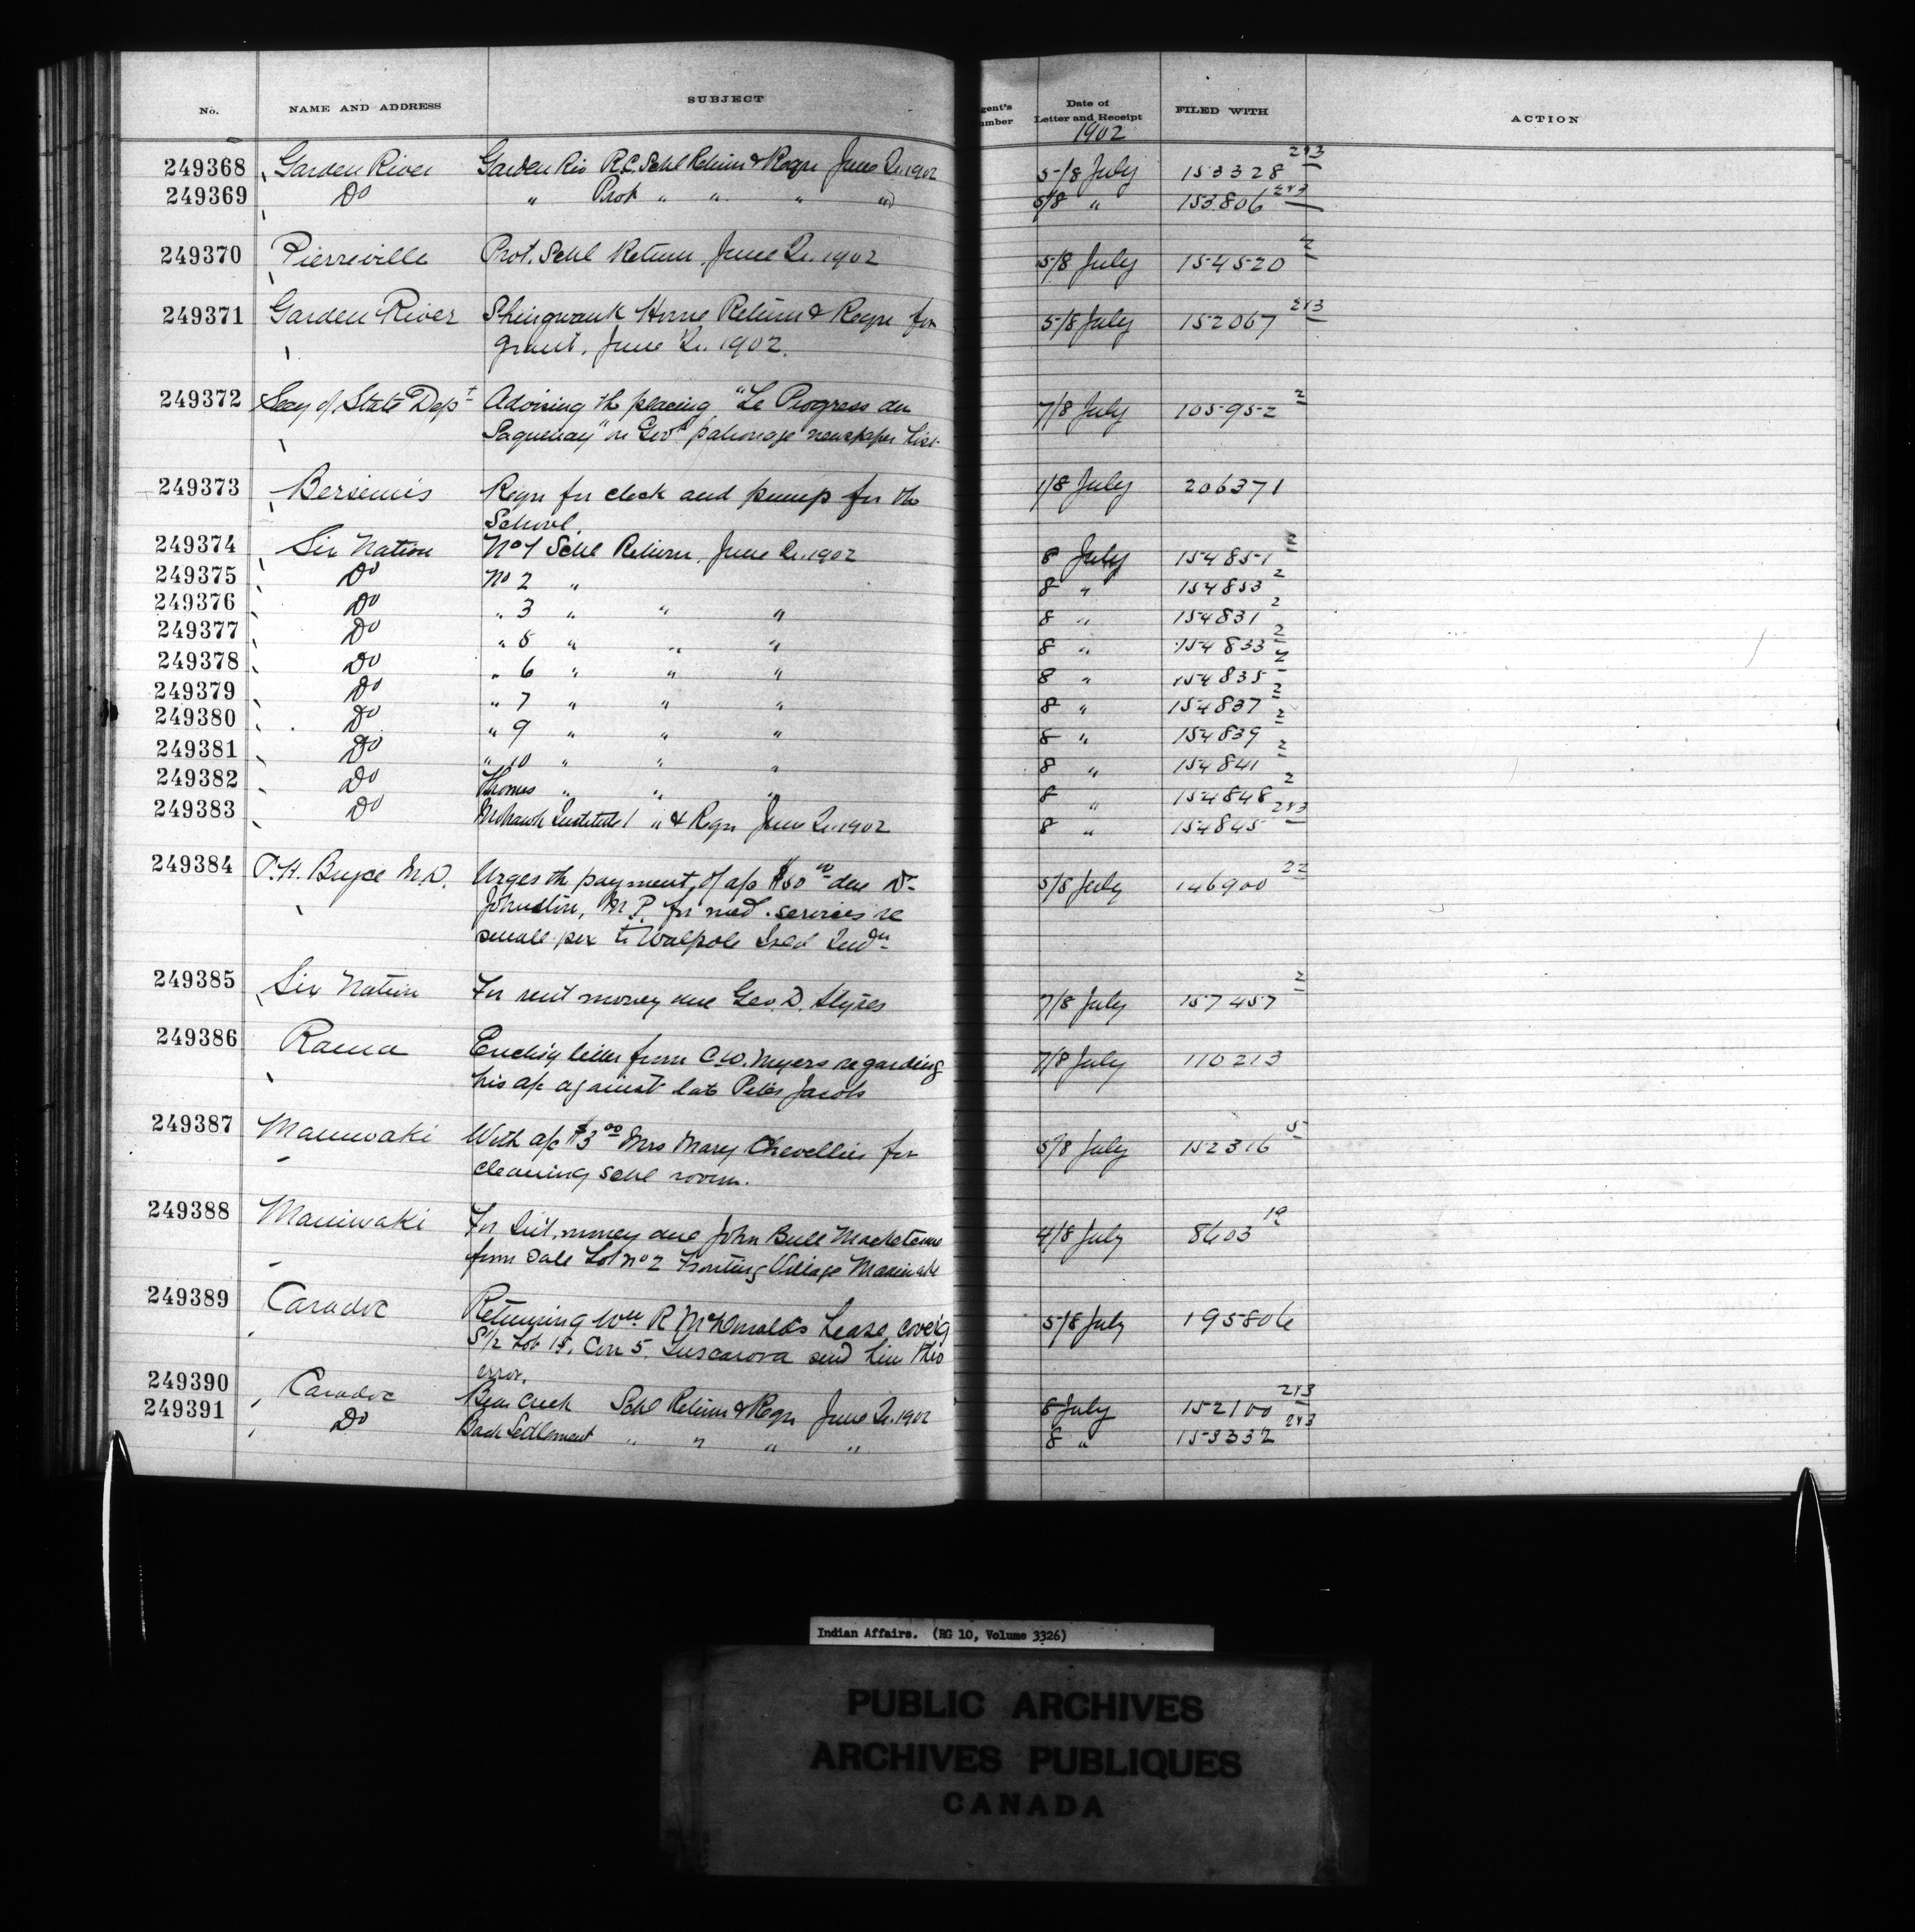 No. NAME AND ADDRESS SUBJECT gent's umber Date of Letter and Receipt FILED WITH ACTION
1902
249368 Garden River Garden Riv R.C. Schl Return & Reqn June Qr. 1902 5/8 July 153328 2&3
249369 Do " Prot " " " " 5/8 " 153806 2&3
249370 Pierreville Prot. Schl Return June Qr. 1902 5/8 July 154520 2
249371 Garden River Shingwauk Home Return & Reqn for 5/8 July 152067 2&3
grant, June Qr. 1902.
249372 Secy of State Dept Advising th placing "Le Progress du 7/8 July 105952 2
Saguenay" on Govt patronage newspaper list
249373 Bersimis Reqn for clock and pump for the 1/8 July 206371
School.
249374 Six Nation No 1 Schl Return, June Qr. 1902 8 July 154851
249375 Do No 2 " 8 " 154853 2
249376 Do " 3 " " " 8 " 154831 2
249377 Do " 5 " " " 8 " 154833 2
249378 Do " 6 " " " 8 " 154835 2
249379 Do " 7 " " " 8 " 154837 2
249380 Do " 9 " " " 8 " 154839 2
249381 Do " 10 " " " 8 " 154841 2
249382 Do Thomas " " " 8 " 154848 2
249383 Do Mohawk Institute " & Reqn June Qr. 1902 8 " 154845 2&3
249384 P.H. Bryce M.D. Urges th payment of a/c $50 00 due Dr 5/8 July 146900 22
Johnston, M.P. for med. services re
small pox to Walpole Isld Indn
249385 Six Nation For rent money due Geo. D. Styres 7/8 July 157457 2
249386 Rama Enclosg letter from C.W. Meyers regarding 7/8 July 110213
his a/c against late Peter Jacobs
249387 Maniwaki With a/c $3 00 Mrs Mary Chevellier for 5/8 July 152316 5
cleaning schl room.
249388 Maniwaki For Int. money due John Bull 4/8 July 8603 19
from sale Lot No 2 Fronting Village Maniwaki
249389 Caradoc Returning Wm R McDonald's Lease coverg 5/8 July 195806
S 1/2 Lot 15, Con 5, Tuscarora send him tho
error.
249390 Caradoc Bear Creek Schl Return & Reqn June Qr. 1902 8 July 152100 2&3
249391 Do Back Settlement " " " " 8 " 153332 2&3
Indian Affairs. (RG 10, Volume 3326)
PUBLIC ARCHIVES
ARCHIVES PUBLIQUES
CANADA